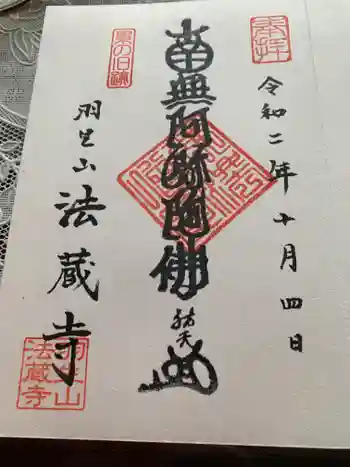 奉拝
令和二年十月四日
南無阿弥陀佛
祐天
累の旧跡
羽生山
法蔵寺
羽生山
法蔵寺